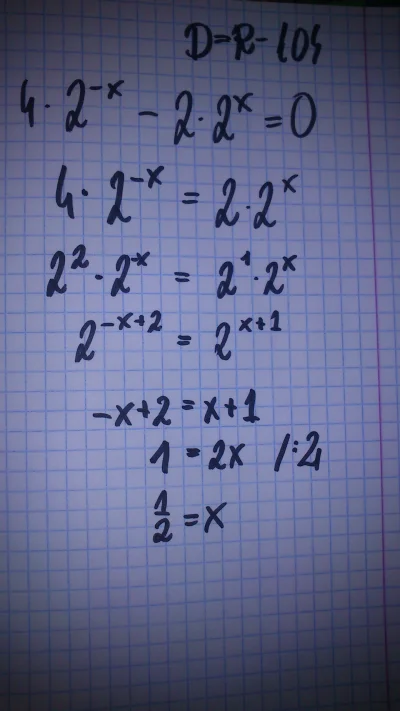 D=R-{0}
4·2⁻ˣ - 2·2ˣ = 0
4·2⁻ˣ = 2·2ˣ
2²·2⁻ˣ = 2¹·2ˣ
2⁻ˣ⁺² = 2ˣ⁺¹
-x+2 = x+1
1 = 2x /:2
1/2 = x